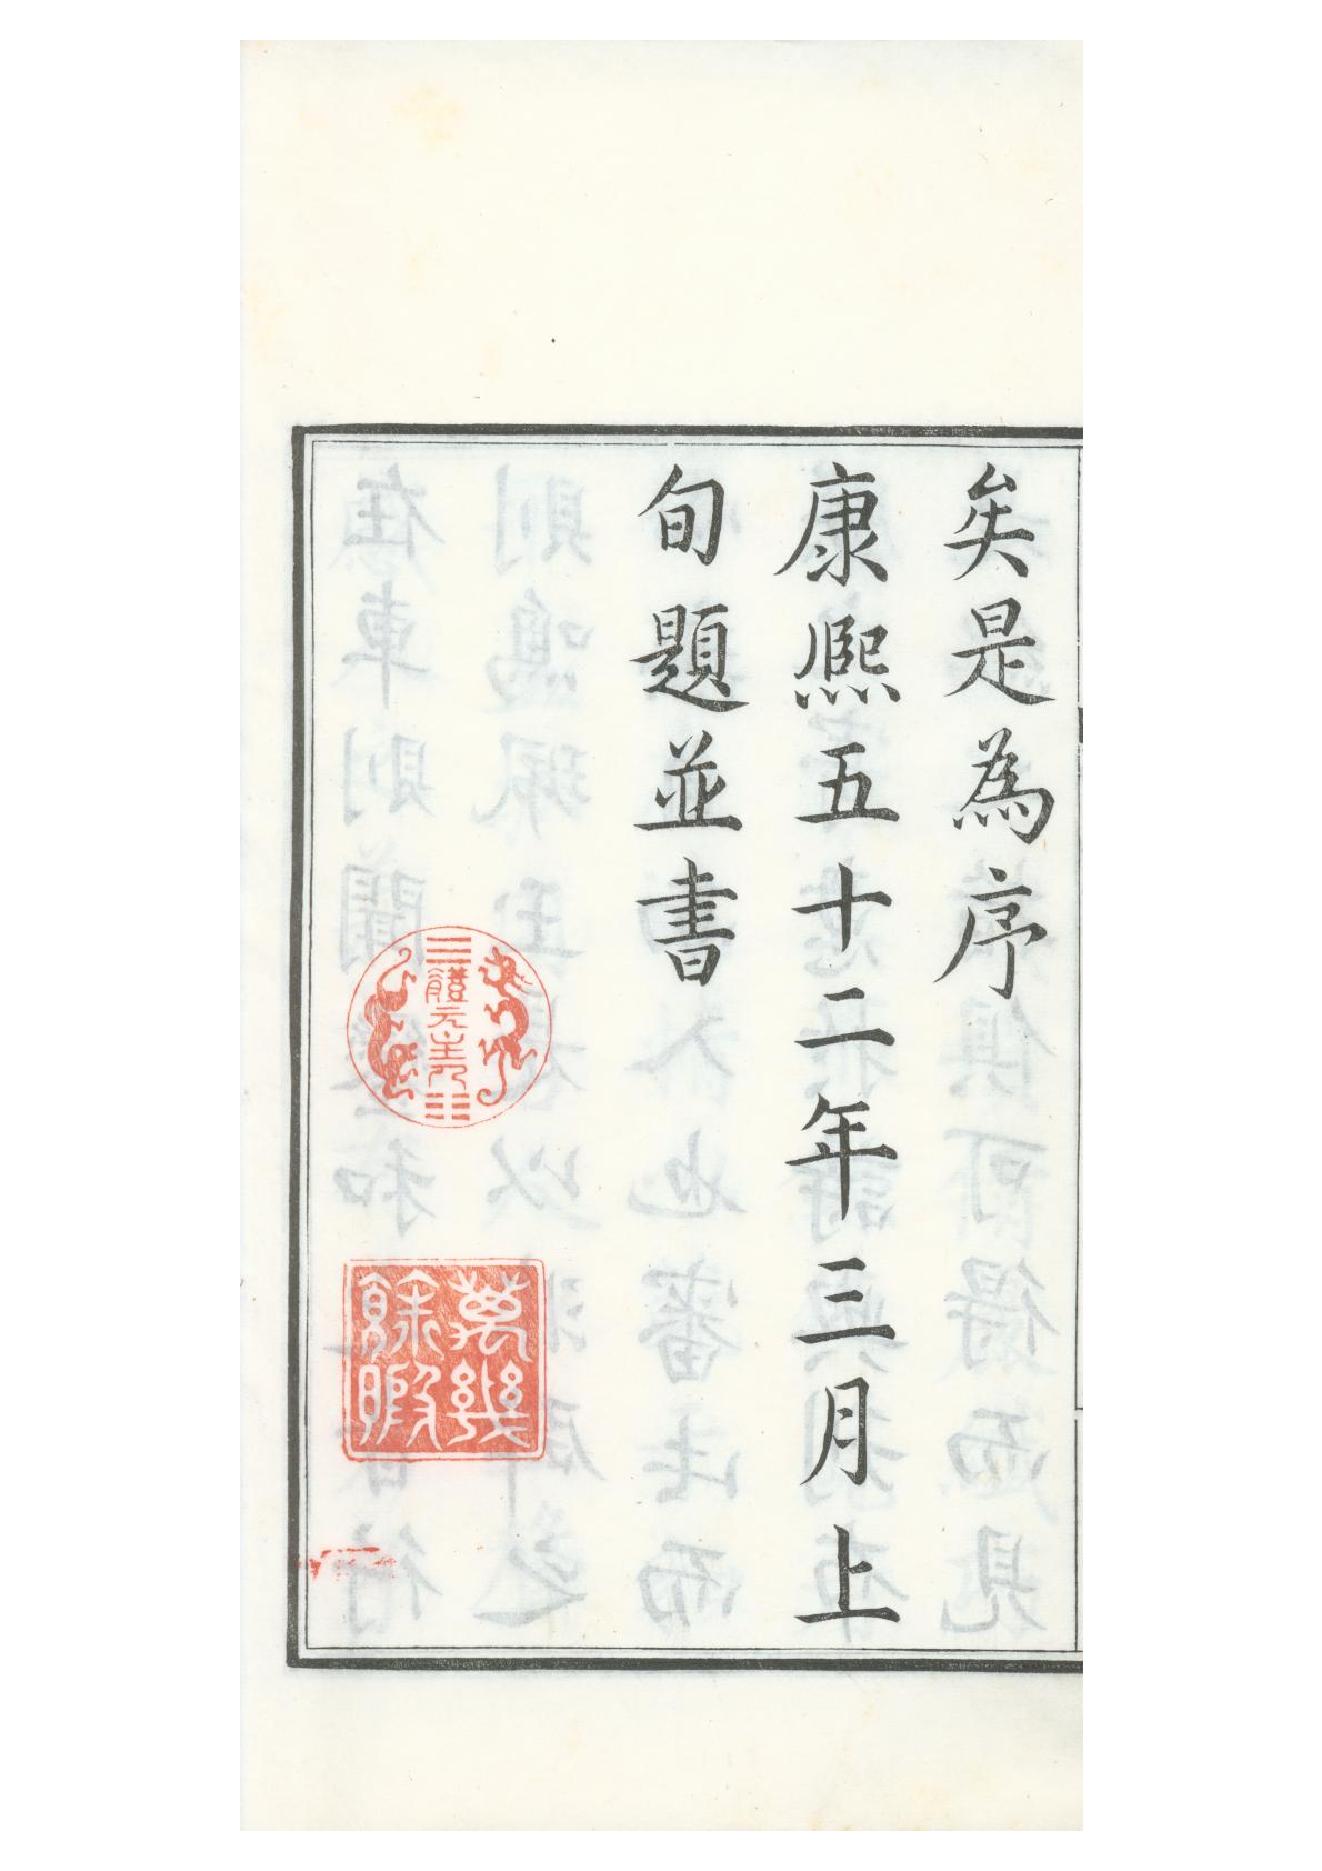 矣是為序
康熙五十二年三月上
旬題並書
體元主人
萬幾
餘暇